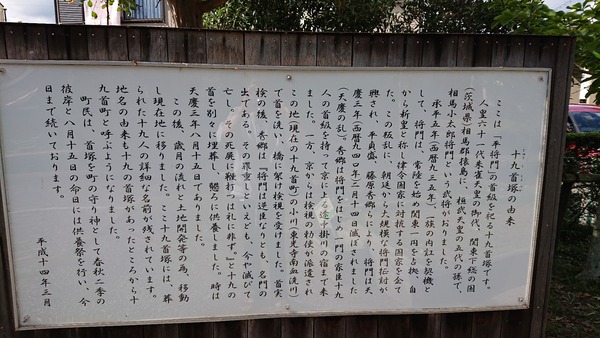 十九首塚の由来
ここは「平将門」の首級を祀る十九首塚です。
人皇六十一代朱雀天皇の御代、関東下総の国
（茨城県）相馬郡猿島に、桓武天皇の五代の孫で、
相馬小太郎将門という武将がおりました。
承平五年（西暦九三五年）一族の内紅を契機と
して、将門は、常陸を始め関東一円を占拠、自
から新皇と称し律令国家に対抗する国家を企て
た。この叛乱に、朝廷から大規模な将門征討が
興され、平貞盛、藤原秀郷らにより、将門は天
慶三年（西暦九四〇年）二月十四日滅ぼされました
（天慶の乱）。秀郷は将門をはじめ一門の家臣十九
人の首級を持って京に上る途中掛川の宿まで来
ました。一方、京からは検視の勅使が派遣され
この地（現在の十九首町）の小川（東光寺南血洗川）
で首を洗い、橋に架け検視を受けました。首実
検の後、秀郷は「将門は逆臣なりとも、名門の
出である。その罪重しといえども、今や滅びて
亡し。その死屍に鞭打つは礼に非ず。」と十九の
首を別々に埋葬し、懇ろに供養しました。時は
天慶三年八月十五日でありました。
この後、歳月の流れと土地開発等の為、移動
し現在地に移りました。ここ十九首塚には、葬
られた十九人の詳細な名前が残されています。
地名の由来も十九の首塚があったところから十
九首町と呼ぶようになりました。
町民は、首塚を町の守り神として春秋二季の
彼岸と八月十五日の命日には供養祭を行い、今
日まで続いております。
平成十四年三月